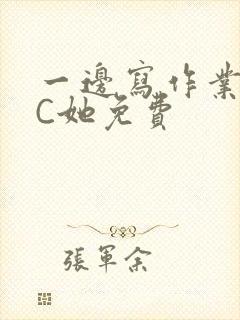 一邊寫作業
C她免費
張軍余